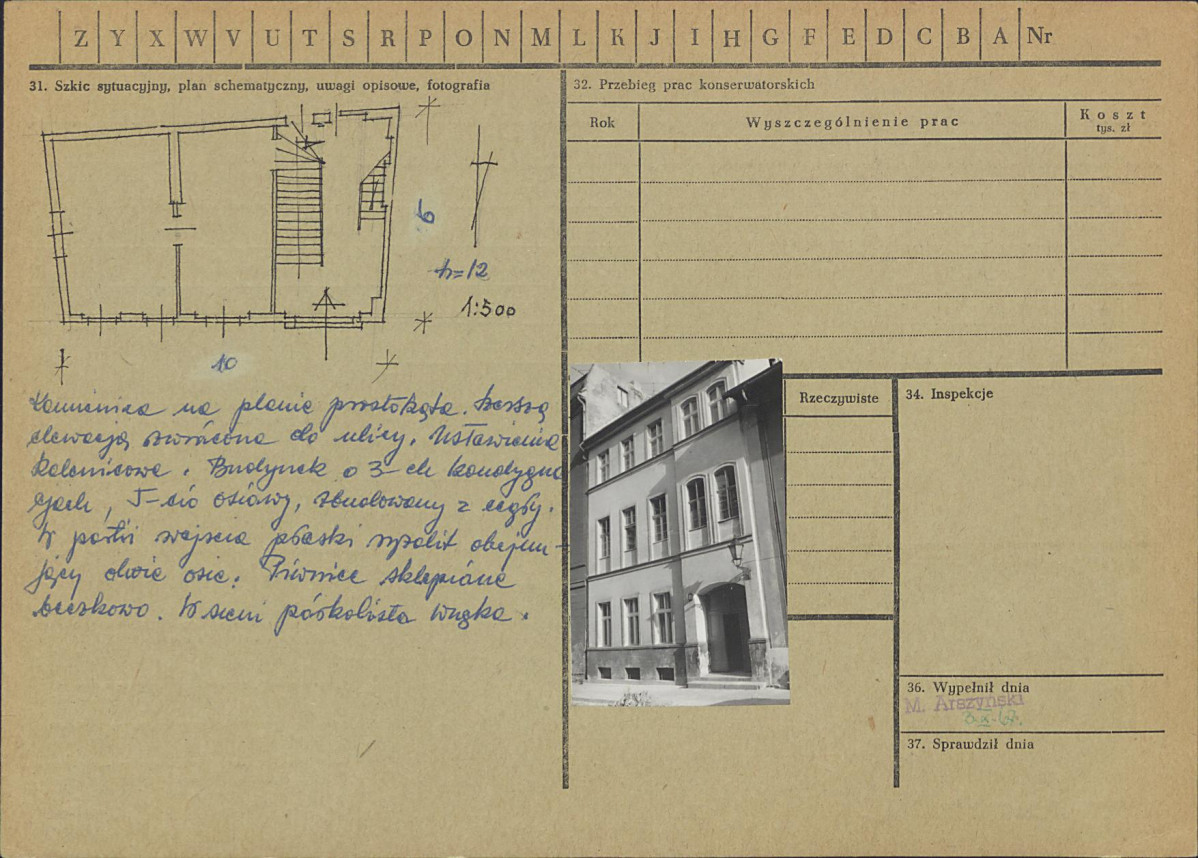 Z Y X W V U T S R P O N M L K J I H G F E D C B A Nr
31. Szkic sytuacyjny, plan schematyczny, uwagi opisowe, fotografia
9
h=12
1:500
10
Kamienica na planie prostokąta. Szerszą
elewacją zwrócona do ulicy. Ustawienie
kalenicowe. Budynek o 3-ch kondygna
cjach, 5-cio osiowy, zbudowany z cegły.
W partii wejścia płaski ryzalit obejmu-
jący dwie osie. Piwnice sklepiane
beczkowo. W sieni półkolista wnęka.
32. Przebieg prac konserwatorskich
Rok
Wyszczególnienie prac
Koszt
tys. zł
Rzeczywiste
34. Inspekcje
36. Wypełnił dnia
M. Arszyński
37. Sprawdził dnia